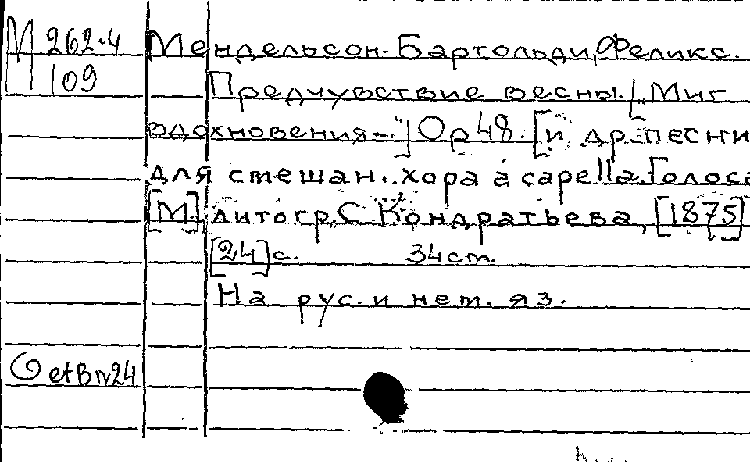 М 262.4 Мендельсон-Бартольди, Феликс.
109 Предчувствие весны. [„Миг
вдохновения-"] Ор 48. [и др. песни
для смешан. хора a capella. Голоса
[М] литогр. С. Кондратьева, [1875]
[24] с. 34 ст.
На рус. и нем. яз.